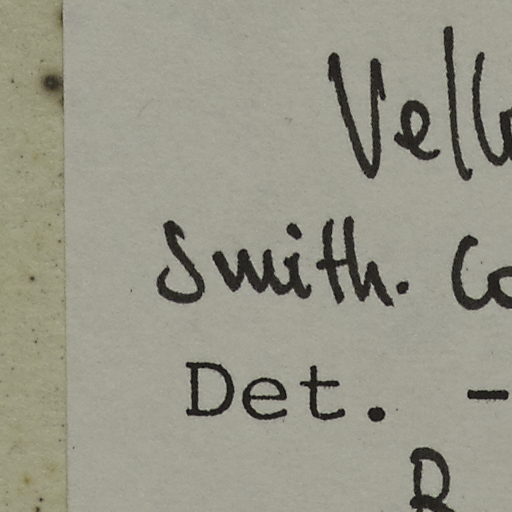 Vell
Smith. Co
Det. -
R